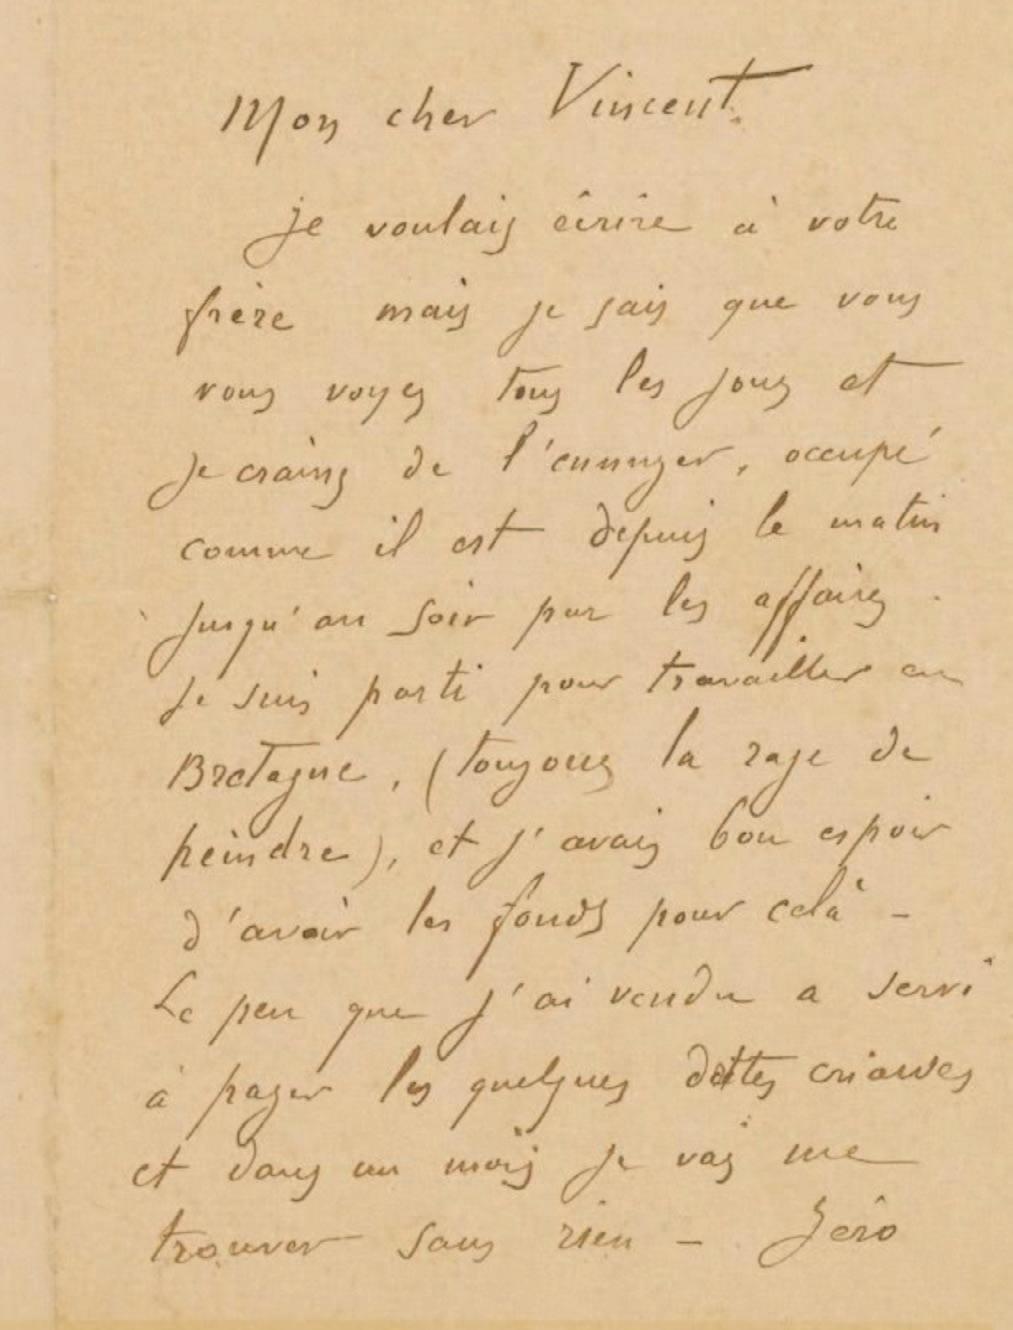 Mon cher Vincent.
Je voulais écrire à votre
frère mais je sais que vous
vous voyez tous les jours et
je crains de l'ennuyer, occupé
comme il est depuis le matin
jusqu'au soir par les affaires.
Je suis parti pour travailler en
Bretagne, (toujours la rage de
peindre), et j'avais bon espoir
d'avoir les fonds pour celà -
Le peu que j'ai vendu a servi
à payer les quelques dettes criardes
et dans un mois je vais me
trouver sans rien - Zéro